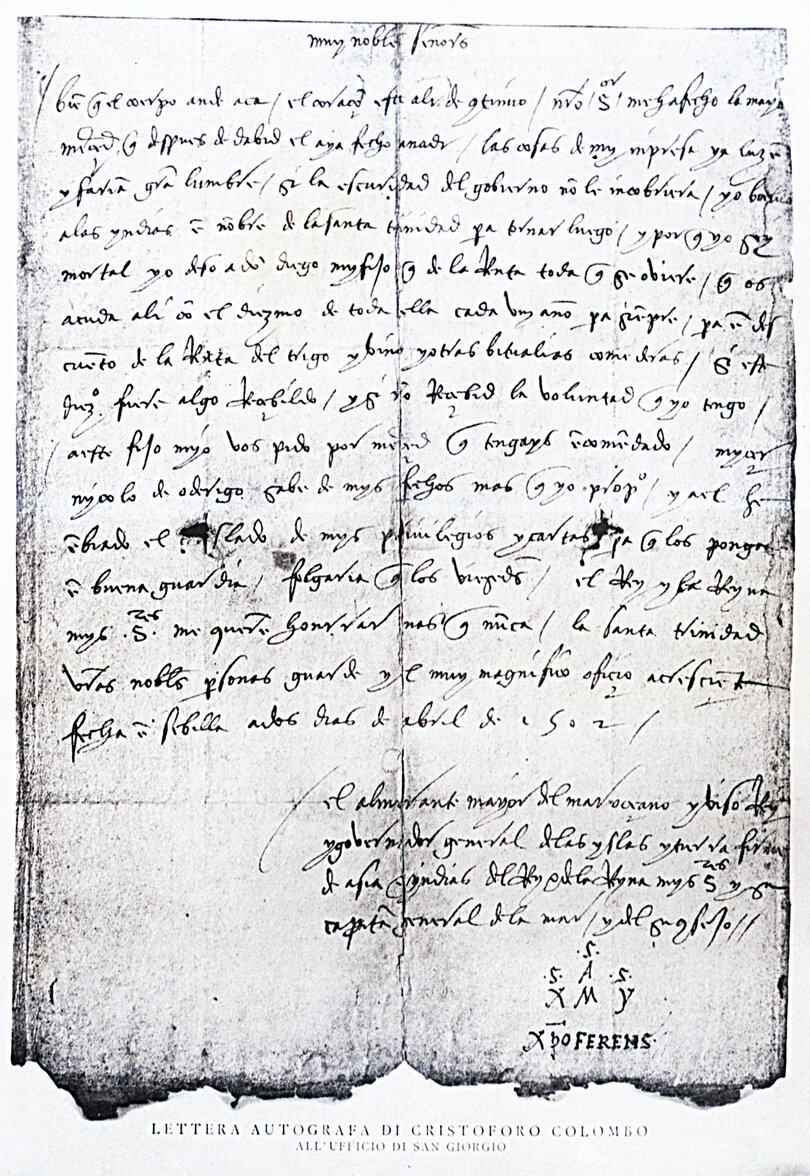 muy nobles señors
bie q el coerpo ande aca / el coraço esta ali de contino / nro Sor me ha fecho la mayor
merced q despues de dabid el aya fecho a nadi / las cosas de my inpresa ya luzen
y farian gra lumbre / si la escuridad del gobierno no le incobriera / yo buelvo
a las yndias e nobre de la santa trinidad pa tornar luego / y por q yo soy
mortal yo deso a do diego my fijo q de la Reta toda q se oviere / q os
acuda ali co el diezmo de toda ella cada un año pa siempre / pa e des
cueto de la Reta del trigo y vino y otras bitualias comederas / si este
diezo fuere algo Recebildo / y si no Recebid la voluntad q yo tengo /
a este fijo myo vos pido por merced q tengays ecomedado / mycer
nycolo de oderigo sabe de mys fechos mas q yo propo / y a el he
ebiado el traslado de mys privilegios y cartas pa q los ponga
e buena guardia / folgaria q los vieseds / el Rey y la Reyna
mys Sres me quere honrrar mas q nuca / la santa trinidad
vras nobles psonas guarde y el muy magnifico oficio acresciente
fecha e sebilla a dos dias de abril de 1502 /
el almirante mayor del mar oceano y viso Rey
y governador general de las yslas y tierra firme
de asia e yndias del Rey e de la Reyna mys Sres y su
capita general de la mar / y del su consejo //
.S.
.S. A .S.
X M Y
Xpo FERENS.
LETTERA AUTOGRAFA DI CRISTOFORO COLOMBO
ALL'UFFICIO DI SAN GIORGIO